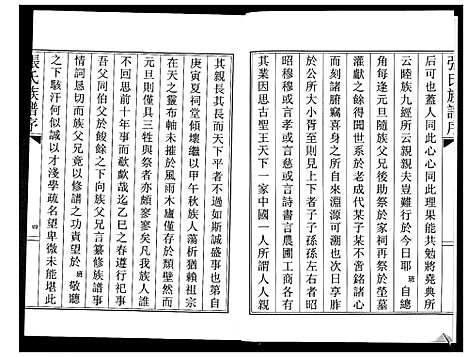 張氏族譜序
后可也蓋人同此心心同此理果能將堯典所
云睦族九經所云親親夫豈難行於今日耶班自總
角每逢元旦隨族父兄後助祭於家祠再祭於
獻廬之餘得聞世系於老成代某子某不啻詳明
而刻諸腑竊喜身之所自來淵源可溯也次日享胙
於公所大小胥至則見上下者子子孫孫左右者昭
昭穆穆或言孝或言慈或言詩書言農圃工商各有
其業因思古聖王天下一家中國一人所謂人人親
其親長其長而天下平者不過如斯誠盛事也第自
庚寅夏祠堂傾壞繼以甲午秋族人蕩析猶賴祖宗
在天之靈布軸未摧於風雨木廬僅存於頹壁然而
元旦則僅具三牲與祭者亦頗寥寥矣凡我族人誰
不思回前十年事而欷歔哉迄乙巳之春次日祀事
吾父同伯父於餕餘之下向族父兄言纂修族譜事
情詞懇切而族父兄竟以修譜之功責望於班敬聽
之下駭汗何似誠以才淺學疏名望卑微未能堪此
張氏族譜序
四